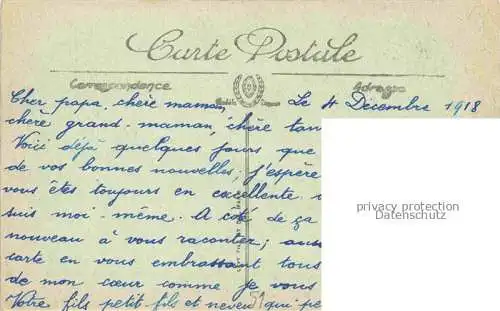 Carte Postale
Correspondance
Adresse
Le 4 Décembre 1918
Cher papa, chère maman,
chère grand-maman, chère tan
Voici déjà quelques jours que
de vos bonnes nouvelles; j'espère
vous êtes toujours en excellente
suis moi-même. A coté de ça
nouveau à vous raconter; aus
carte en vous embrassant tous
de mon cœur comme je vous
Votre fils petit-fils et neveu qui pe
privacy protection
Datenschutz